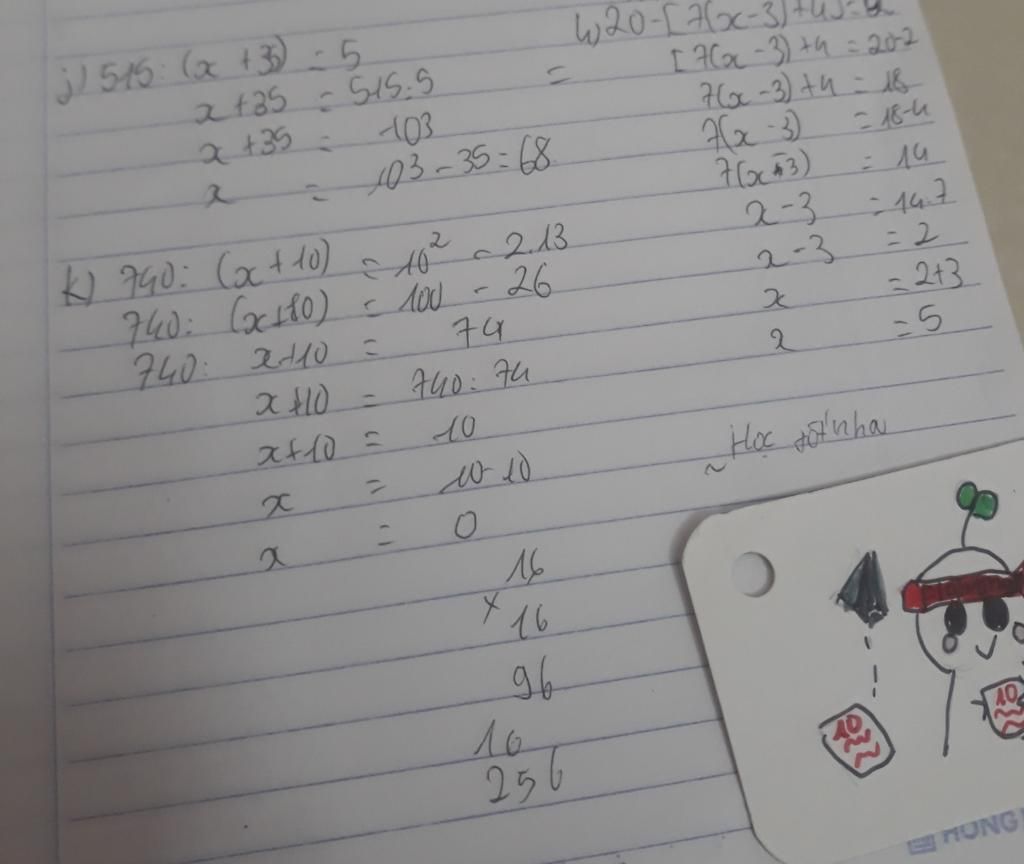 j) 515 : (x + 35) = 5
x + 35 = 515 : 5
x + 35 = 103
x = 103 - 35 = 68
k) 740 : (x + 10) = 10² - 2.13
740 : (x + 10) = 100 - 26
740 : x + 10 = 74
x + 10 = 740 : 74
x + 10 = 10
x = 10 - 10
x = 0
16
× 16
96
16
256
20 - [7(x - 3) + 4] = 2
= [7(x - 3) + 4 = 20 - 2
7(x - 3) + 4 = 18
7(x - 3) = 18 - 4
7(x - 3) = 14
x - 3 = 14 : 7
x - 3 = 2
x = 2 + 3
x = 5
~ Học tốt nha
10
10
HONG